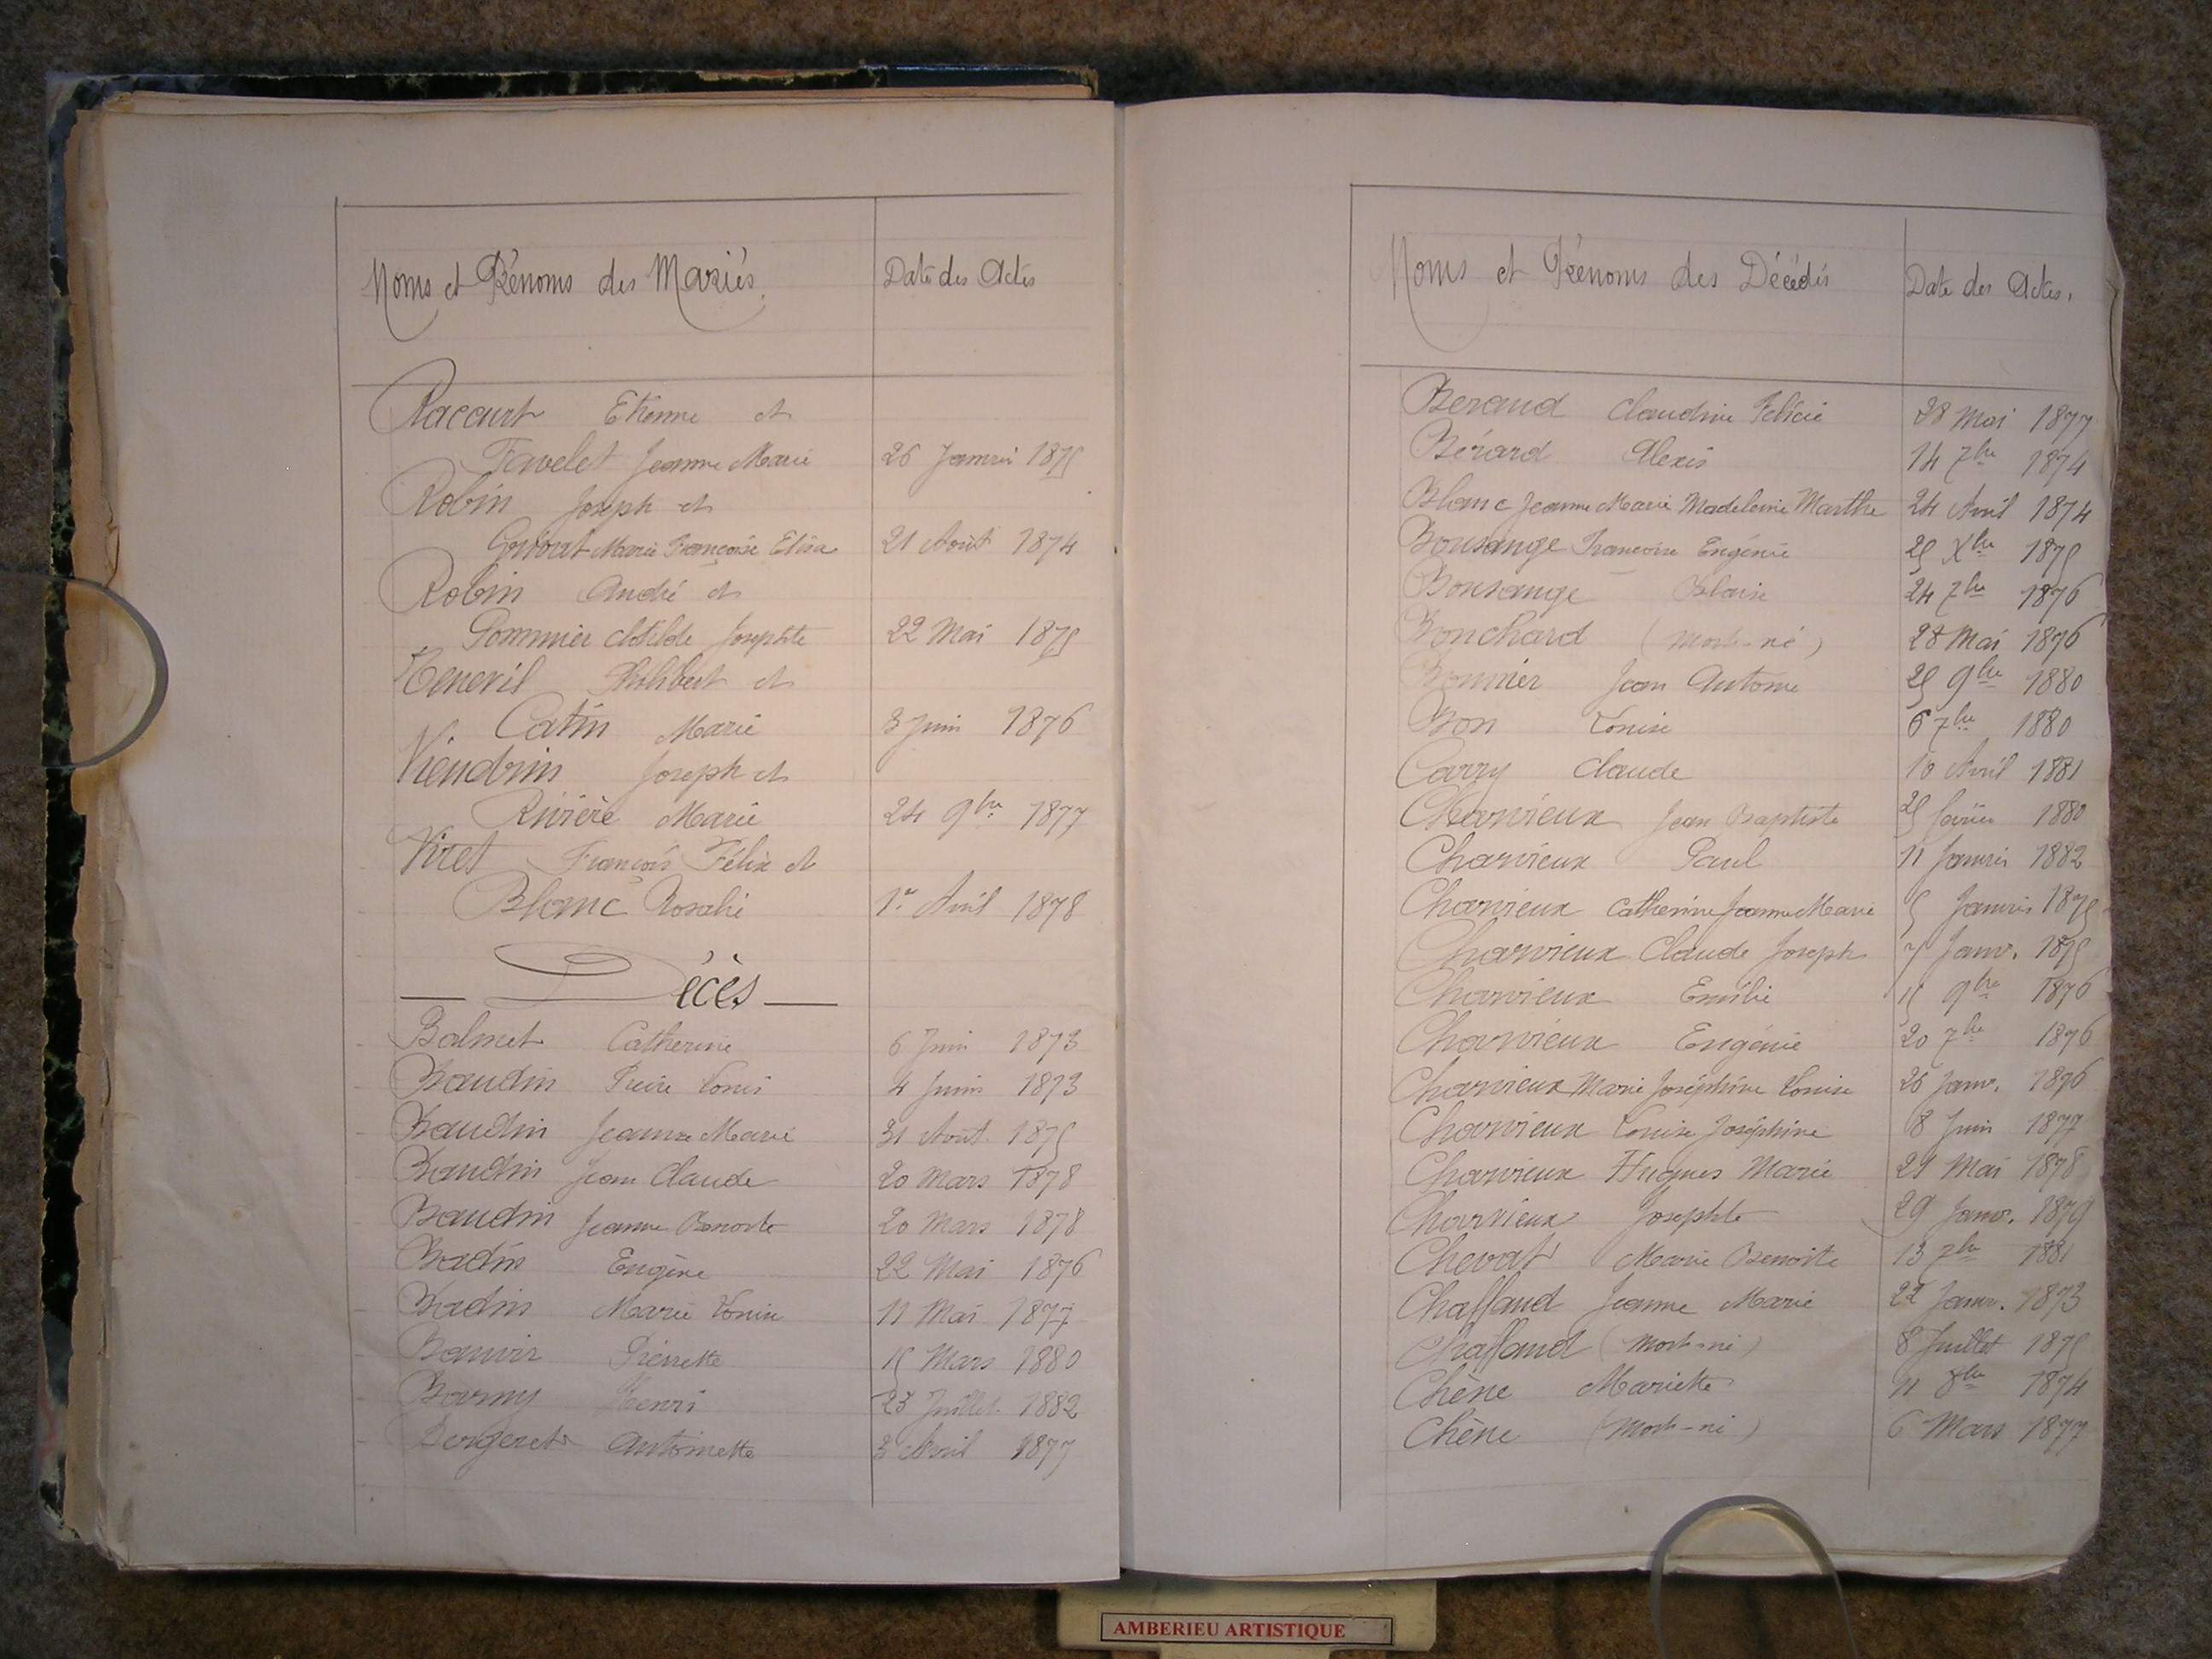 Noms et Prénoms des Mariés. Date des Actes
Racourt Etienne et
Favelet Jeanne Marie 26 Janvier 1875
Robin Joseph et
Marie Françoise Elisa 21 Août 1874
Robin André et
Pommier Clotilde Josephte 22 Mai 1875
Philibert et
Catin Marie 3 Juin 1876
Viendrin Joseph et
Rivière Marie 24 9bre 1877
Viret François Félix et
Blanc Rosalie 1er Avril 1878
Décès
Balmet Catherine 6 Juin 1873
Baudin Pierre Louis 4 Juin 1873
Baudin Jeanne Marie 31 Août 1875
Baudin Jean Claude 20 Mars 1878
Baudin Jeanne Benoite 20 Mars 1878
Badin Eugène 22 Mai 1876
Badin Marie Louise 11 Mai 1877
Pierrette 15 Mars 1880
Barny Henri 23 Juillet 1882
Bergeret Antoinette 3 Avril 1877
Noms et Prénoms des Décédés Date des Actes.
Beraud Claudine Felicie 28 Mai 1877
Bérard Alexis 14 7bre 1874
Blanc Jeanne Marie Madeleine Marthe 24 Avril 1874
Bousange Francoise Eugénie 25 Xbre 1875
Bousange Blaise 24 7bre 1876
Bouchard (Mort-né) 28 Mai 1876
Bonnier Jean Antoine 25 9bre 1880
Bon Louise 6 7bre 1880
Carry Claude 10 Avril 1881
Charvieux Jean Baptiste 25 février 1880
Charvieux Paul 11 Janvier 1882
Charvieux Catherine Jeanne Marie 5 Janvier 1875
Charvieux Claude Joseph 7 Janv. 1875
Charvieux Emilie 15 9bre 1876
Charvieux Eugénie 20 7bre 1876
Charvieux Marie Joséphine Louise 26 Janv. 1876
Charvieux Louise Joséphine 8 Juin 1877
Charvieux Hugues Marie 21 Mai 1878
Charvieux Josephte 29 Janv. 1879
Chevat Marie Benoite 13 7bre 1881
Chaffaud Jeanne Marie 22 Janv. 1873
Chaffaud (Mort-né) 8 Juillet 1875
Chêne Mariette 11 8bre 1874
Chêne (Mort-né) 6 Mars 1877
AMBERIEU ARTISTIQUE